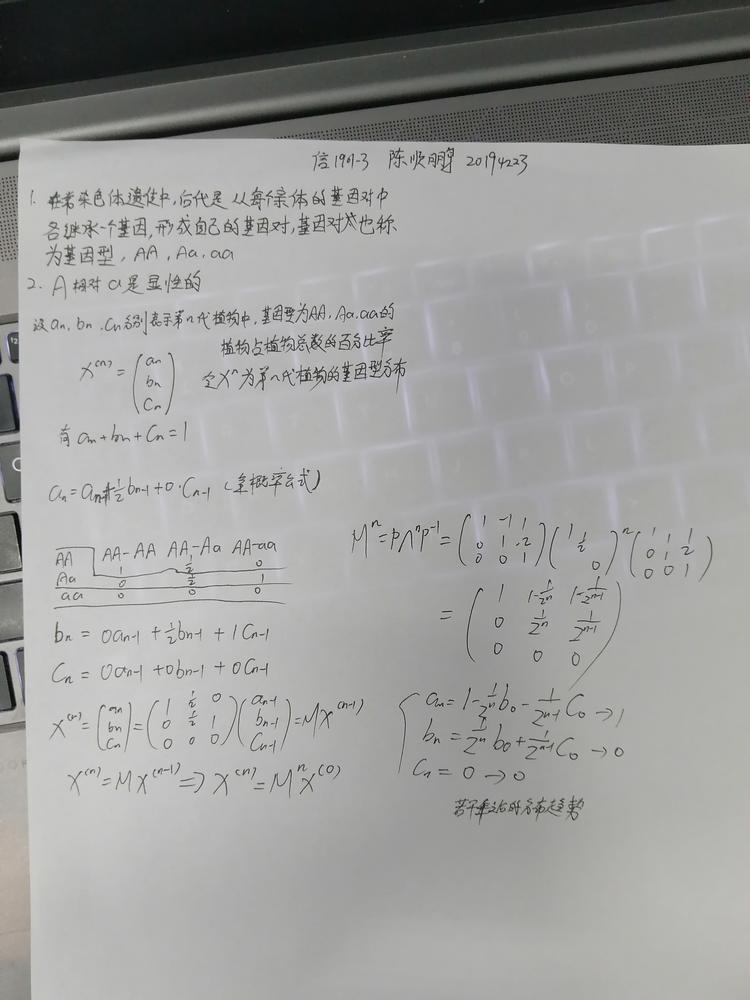 信1901-3 陈顺朋 20194223
1. 在常染色体遗传中,后代是从每个亲体的基因对中
各继承一个基因,形成自己的基因对,基因对也称
为基因型, AA, Aa, aa
2. A相对a是显性的
设an, bn, cn分别表示第n代植物中,基因型为AA, Aa, aa的
植物占植物总数的百分比率
X^(n) = (an bn cn) 令X^n为第n代植物的基因型分布
有 an + bn + cn = 1
an = an-1 + 1/2 bn-1 + 0·Cn-1 (全概率公式)
AA-AA AA-Aa AA-aa
AA 1 1/2 0
Aa 0 1/2 1
aa 0 0 0
bn = 0an-1 + 1/2 bn-1 + 1Cn-1
Cn = 0an-1 + 0bn-1 + 0Cn-1
X^(n) = (an bn cn) = (1 1/2 0 0 1/2 1 0 0 0)(an-1 bn-1 Cn-1) = MX^(n-1)
X^(n) = MX^(n-1) ⇒ X^(n) = M^n X^(0)
M^n = PΛ^nP^-1 = (1 -1 1 0 1 -2 0 0 1)(1 1/2 0)^n(1 1 1 0 1 2 0 0 1)
= (1 1-1/2^n 1-1/2^(n-1) 0 1/2^n 1/2^(n-1) 0 0 0)
an = 1 - 1/2^n b0 - 1/2^(n-1) C0 → 1
bn = 1/2^n b0 + 1/2^(n-1) C0 → 0
Cn = 0 → 0
若干年之后的分布趋势